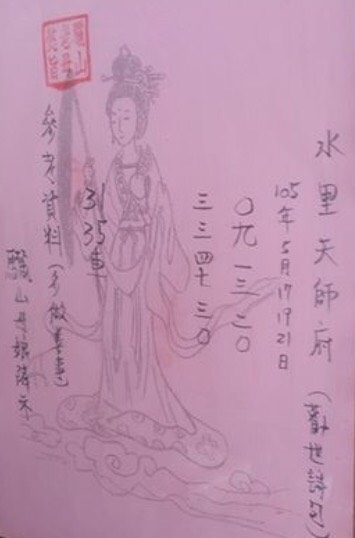 水里天師府(勸世詩句)
105年5月17 19 21日
〇九 一三 二〇
三三 四七 三〇
31 35車
參考資料(多做善事)
驪山母娘降示